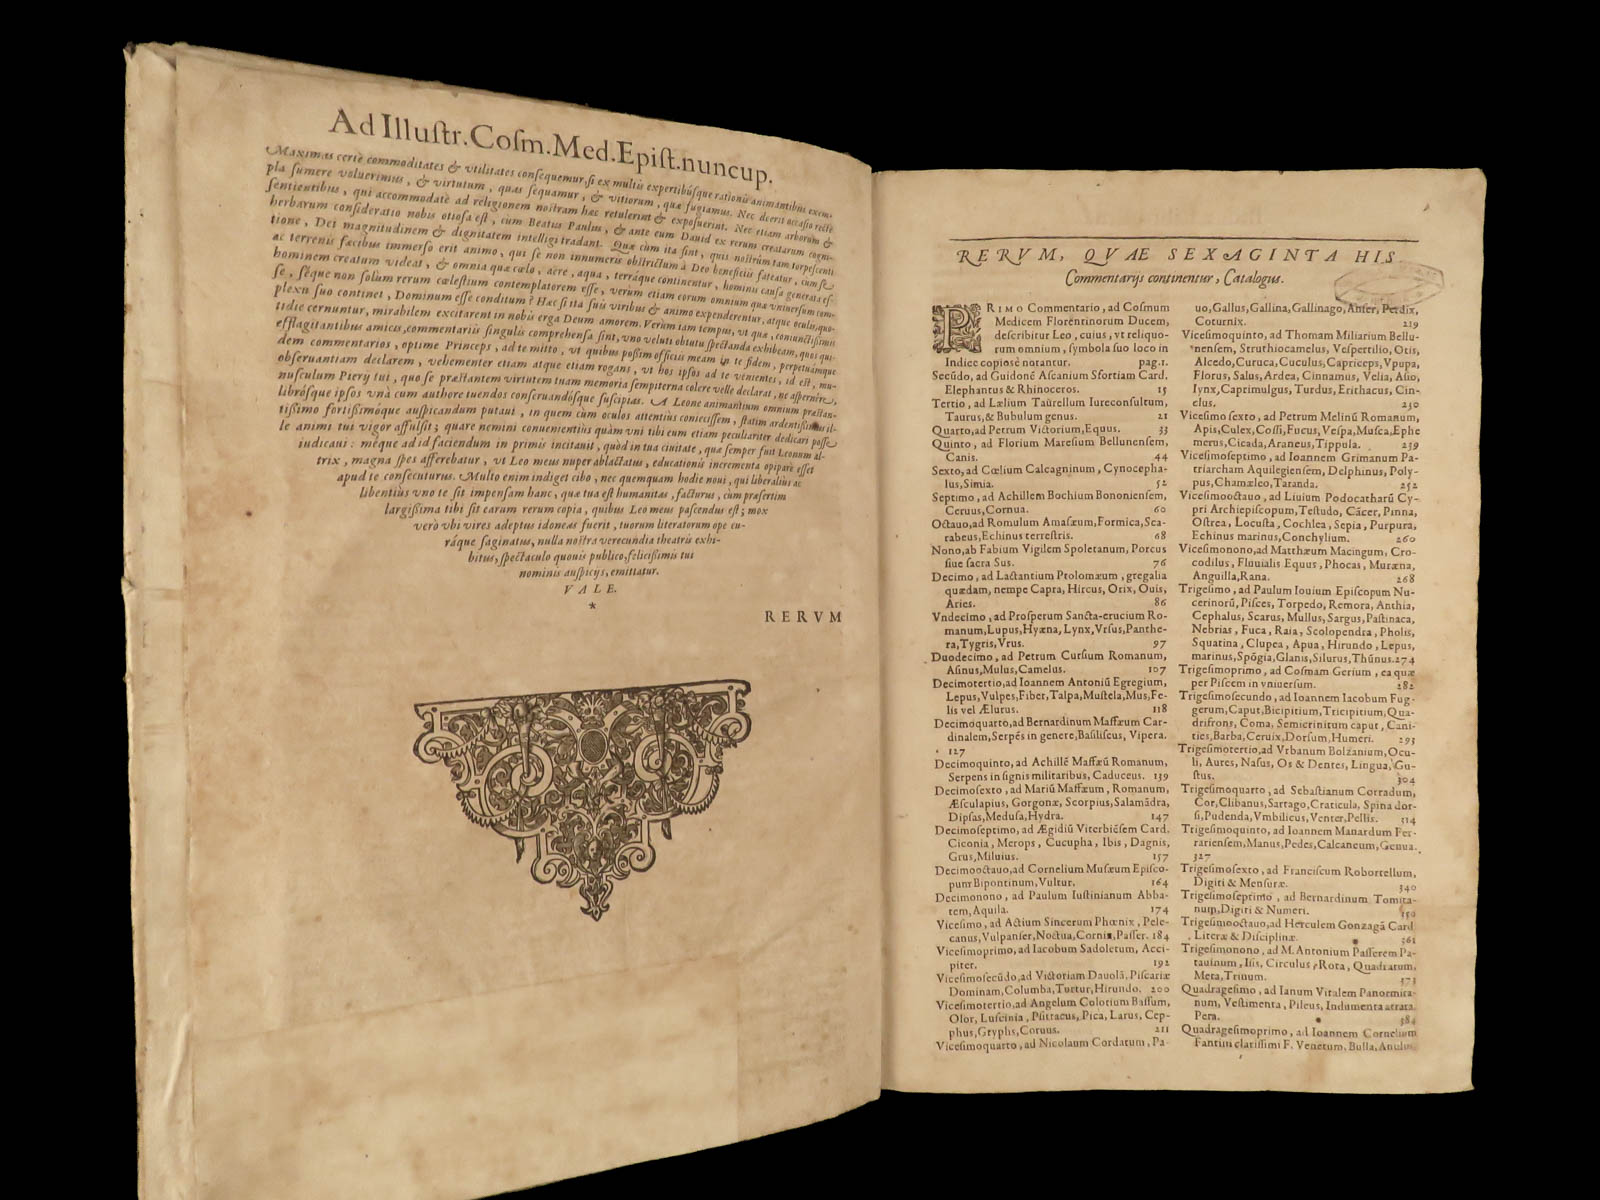 Ad Illuſtr. Coſm. Med. Epiſt. nuncup.
Maximas certè commoditates & vtilitates conſequemur, ſi ex multis expertibúſque rationis animantibus exem-
pla ſumere voluerimus, & virtutum, quas ſequamur, & vitiorum, quæ fugiamus. Nec deerit occaſio rectè
ſentientibus, qui accommodatè ad religionem noſtram hæc retulerint & expoſuerint. Nec etiam arborum &
herbarum conſideratio nobis otioſa eſt, cùm Beatus Paulus, & ante eum Dauid ex rerum creatarum cogni-
tione, Dei magnitudinem & dignitatem intelligi tradant. Quæ cùm ita ſint, quis noſtrûm tam torpeſcenti
ac terrenis fæcibus immerſo erit animo, qui ſe non innumeris obſtrictum à Deo beneficiis fateatur, cùm ſe
hominem creatum videat, & omnia quæ cœlo, aere, aqua, terráque continentur, hominis cauſa generata eſ-
ſe, ſéque non ſolùm rerum cœleſtium contemplatorem eſſe, verùm etiam eorum omnium quæ vniuerſum com-
plexu ſuo continet, Dominum eſſe conditum? Hæc ſi ita ſuis viribus & animo expenderentur, atque oculis, quo-
tidie cernuntur, mirabilem excitarent in nobis erga Deum amorem. Verùm tam tempus, vt quæ, coniunctiſſimis
efflagitantibus amicis, commentariis ſingulis comprehenſa ſint, vno veluti obtutu ſpectanda exhibeam, quos qui-
dem commentarios, optime Princeps, ad te mitto, vt quibus poſſim officiis meam in te fidem, perpetuámque
obſeruantiam declarem, vehementer etiam atque etiam rogans, vt hos ipſos ad te venientes, id eſt, mu-
nuſculum Pierij tui, quo ſe præſtantem virtutem tuam memoria ſempiterna colere velle declarat, ne aſpernére,
libróſque ipſos vnà cum authore tuendos conſeruandóſque ſuſcipias. A Leone animantium omnium præſtan-
tiſſimo fortiſſimóque auſpicandum putaui, in quem cùm oculos attentiùs coniecíſſem, ſtatim ardentiſſimus il-
le animi tui vigor affulſit; quare nemini conuenientiùs quàm vni tibi eum etiam peculiariter dedicari poſſe
iudicaui: méque ad id faciendum in primis incitauit, quòd in tua ciuitate, quæ ſemper fuit Leonum al-
trix, magna ſpes afferebatur, vt Leo meus nuper ablactatus, educationis incrementa opiparè eſſet
apud te conſecuturus. Multo enim indiget cibo, nec quemquam hodie noui, qui liberaliùs ac
libentiùs vno te ſit impenſam hanc, quæ tua eſt humanitas, facturus, cùm præſertim
largiſſima tibi ſit earum rerum copia, quibus Leo meus paſcendus eſt; mox
verò vbi vires adeptus idoneas fuerit, tuorum literatorum ope cu-
ráque ſaginatus, nulla noſtra verecundia theatris exhi-
bitus, ſpectaculo quouis publico, feliciſſimis tui
nominis auſpicijs, emittatur.
VALE.
*
RERVM
RERVM, QVAE SEXAGINTA HIS
Commentarijs continentur, Catalogus.
PRIMO Commentario, ad Coſmum
Medicem Florentinorum Ducem,
deſcribitur Leo, cuius, vt reliquo-
rum omnium, ſymbola ſuo loco in
Indice copiosè notantur. pag.1.
Secũdo, ad Guidonẽ Aſcanium Sfortiam Card.
Elephantus & Rhinoceros. 15
Tertio, ad Lælium Taurellum Iureconſultum,
Taurus, & Bubulum genus. 21
Quarto, ad Petrum Victorium, Equus. 33
Quinto, ad Florium Mareſium Bellunenſem,
Canis. 44
Sexto, ad Cœlium Calcagninum, Cynocepha-
lus, Simia. 52
Septimo, ad Achillem Bochium Bononienſem,
Ceruus, Cornua. 60
Octauo, ad Romulum Amaſæum, Formica, Sca-
rabeus, Echinus terreſtris. 68
Nono, ab Fabium Vigilem Spoletanum, Porcus
ſiue ſacra Sus. 76
Decimo, ad Lactantium Ptolomæum, gregalia
quædam, nempe Capra, Hircus, Orix, Ouis,
Aries. 86
Vndecimo, ad Proſperum Sancta-crucium Ro-
manum, Lupus, Hyæna, Lynx, Vrſus, Panthe-
ra, Tygris, Vrus. 97
Duodecimo, ad Petrum Curſium Romanum,
Aſinus, Mulus, Camelus. 107
Decimotertio, ad Ioannem Antoniũ Egregium,
Lepus, Vulpes, Fiber, Talpa, Muſtela, Mus, Fe-
lis vel Ælurus. 118
Decimoquarto, ad Bernardinum Maffæum Car-
dinalem, Serpẽs in genere, Baſiliſcus, Vipera.
127
Decimoquinto, ad Achillẽ Maffæũ Romanum,
Serpens in ſignis militaribus, Caduceus. 139
Decimoſexto, ad Mariũ Maffæum, Romanum,
Æſculapius, Gorgonæ, Scorpius, Salamãdra,
Dipſas, Meduſa, Hydra. 147
Decimoſeptimo, ad Ægidiũ Viterbiẽſem Card.
Ciconia, Merops, Cucupha, Ibis, Dagnis,
Grus, Miluius. 157
Decimooctauo, ad Cornelium Muſæum Epiſco-
pum Bipontinum, Vultur. 164
Decimonono, ad Paulum Iuſtinianum Abba-
tem, Aquila. 174
Viceſimo, ad Actium Sincerum Phœnix, Pele-
canus, Vulpanſer, Noctua, Cornix, Paſſer. 184
Viceſimoprimo, ad Iacobum Sadoletum, Acci-
piter. 192
Viceſimoſecũdo, ad Victoriam Daualã, Piſcariæ
Dominam, Columba, Turtur, Hirundo. 200
Viceſimotertio, ad Angelum Colotium Baſſum,
Olor, Luſcinia, Pſittacus, Pica, Larus, Cep-
phus, Gryphs, Coruus. 211
Viceſimoquarto, ad Nicolaum Cordatum, Pa-
uo, Gallus, Gallina, Gallinago, Anſer, Perdix,
Coturnix. 219
Viceſimoquinto, ad Thomam Miliarium Bellu-
nenſem, Struthiocamelus, Veſpertilio, Otis,
Alcedo, Curuca, Cuculus, Capriceps, Vpupa,
Florus, Salus, Ardea, Cinnamus, Velia, Aſio,
Iynx, Caprimulgus, Turdus, Erithacus, Cin-
clus. 230
Viceſimo ſexto, ad Petrum Melinũ Romanum,
Apis, Culex, Coſſi, Fucus, Veſpa, Muſca, Ephe
merus, Cicada, Araneus, Tippula. 239
Viceſimoſeptimo, ad Ioannem Grimanum Pa-
triarcham Aquilegienſem, Delphinus, Poly-
pus, Chamæleo, Taranda. 252
Viceſimooctauo, ad Liuium Podocatharũ Cy-
pri Archiepiſcopum, Teſtudo, Cãcer, Pinna,
Oſtrea, Locuſta, Cochlea, Sepia, Purpura,
Echinus marinus, Conchylium. 260
Viceſimonono, ad Matthæum Macingum, Cro-
codilus, Fluuialis Equus, Phocas, Muræna,
Anguilla, Rana. 268
Trigeſimo, ad Paulum Iouium Epiſcopum Nu-
cerinorũ, Piſces, Torpedo, Remora, Anthia,
Cephalus, Scarus, Mullus, Sargus, Paſtinaca,
Nebrias, Fuca, Raia, Scolopendra, Pholis,
Squatina, Clupea, Apua, Hirundo, Lepus,
marinus, Spõgia, Glanis, Silurus, Thũnus. 274
Trigeſimoprimo, ad Coſmam Gerium, ea quæ
per Piſcem in vniuerſum. 282
Trigeſimoſecundo, ad Ioannem Iacobum Fug-
gerum, Caput, Bicipitium, Tricipitium, Qua-
drifrons, Coma, Semicrinitum caput, Cani-
ties, Barba, Ceruix, Dorſum, Humeri. 293
Trigeſimotertio, ad Vrbanum Bolzanium, Ocu-
li, Aures, Naſus, Os & Dentes, Lingua, Gu-
ſtus. 304
Trigeſimoquarto, ad Sebaſtianum Corradum,
Cor, Clibanus, Sartago, Craticula, Spina dor-
ſi, Pudenda, Vmbilicus, Venter, Pellis. 314
Trigeſimoquinto, ad Ioannem Manardum Fer-
rarienſem, Manus, Pedes, Calcaneum, Genua.
327
Trigeſimoſexto, ad Franciſcum Robortellum,
Digiti & Menſuræ. 340
Trigeſimoſeptimo, ad Bernardinum Tomita-
num, Digiti & Numeri. 350
Trigeſimooctauo, ad Herculem Gonzagã Card
Literæ & Diſciplinæ. 361
Trigeſimonono, ad M. Antonium Paſſerem Pa-
tauinum, Iſis, Circulus, Rota, Quadratum,
Meta, Trinum. 373
Quadrageſimo, ad Ianum Vitalem Panormita-
num, Veſtimenta, Pileus, Indumenta attrita
Pera. 384
Quadrageſimoprimo, ad Ioannem Cornelium
Fantini clariſſimi F. Venetum, Bulla, Anulus